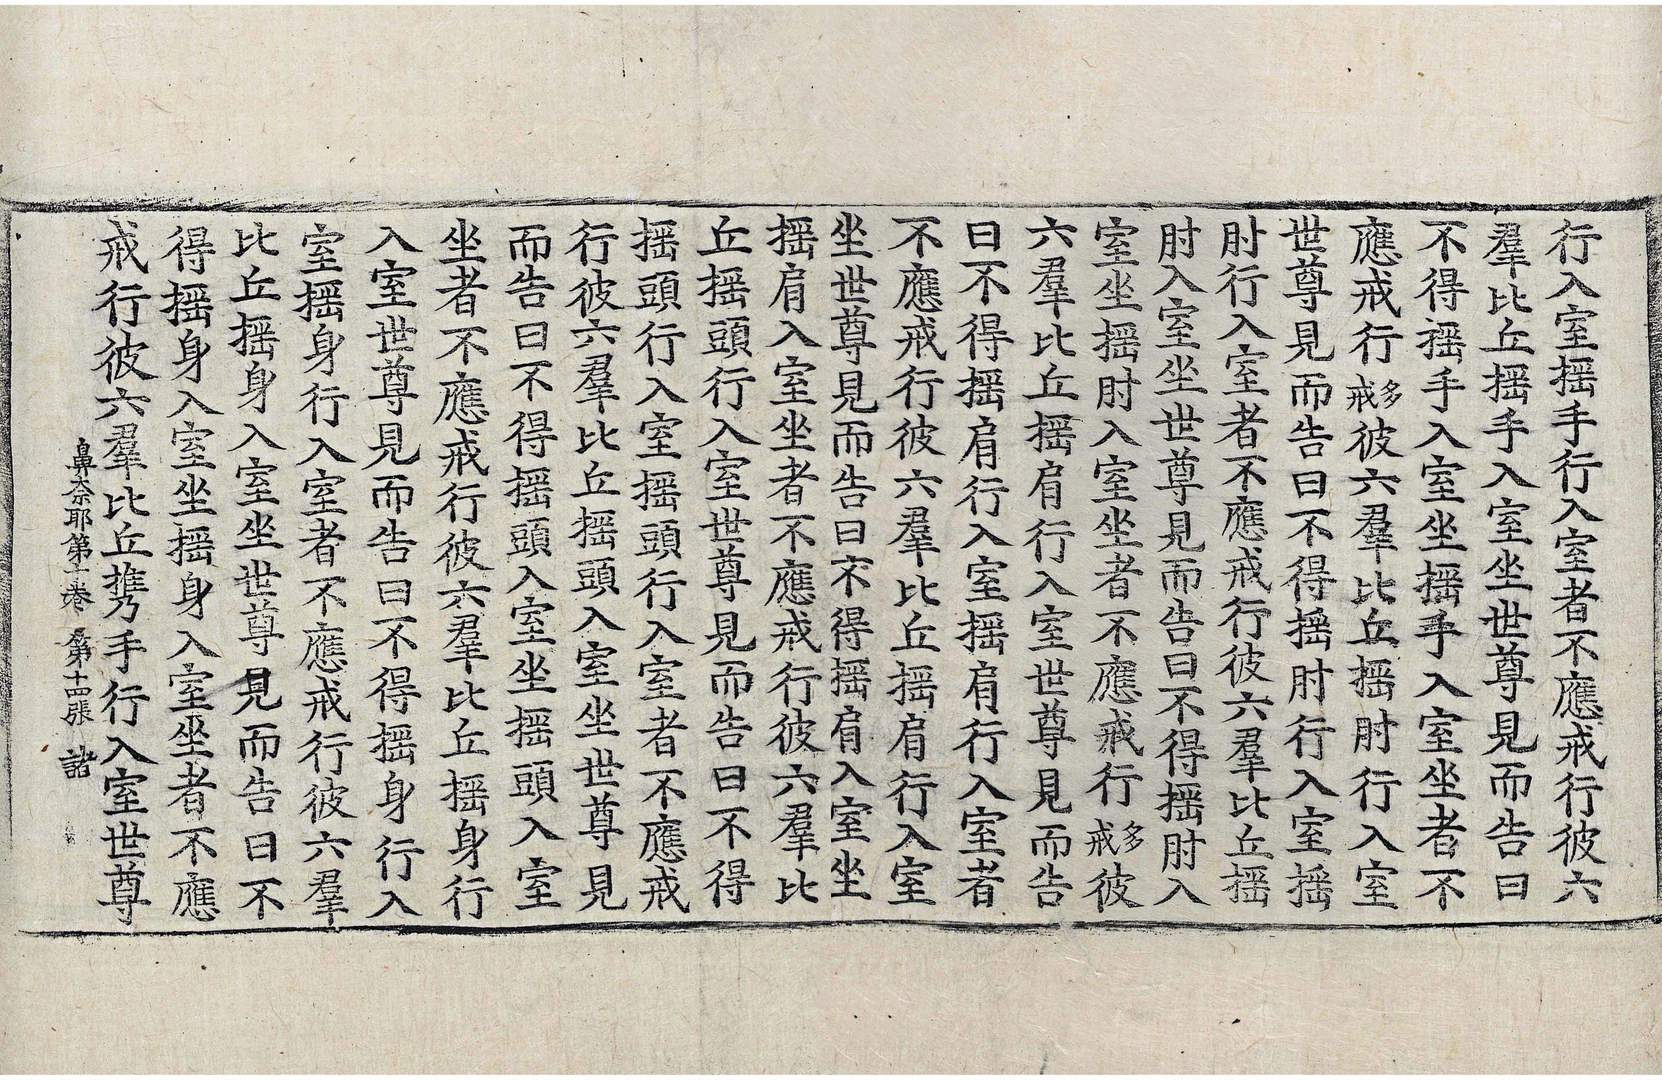 行入室揺手行入室者不應戒行彼六
羣比丘揺手入室坐世尊見而告曰
不得揺手入室坐揺手入室坐者不
應戒行多戒彼六羣比丘揺肘行入室
世尊見而告曰不得揺肘行入室揺
肘行入室者不應戒行彼六羣比丘揺
肘入室坐世尊見而告曰不得揺肘入
室坐揺肘入室坐者不應戒行多戒彼
六羣比丘揺肩行入室世尊見而告
曰不得揺肩行入室揺肩行入室者
不應戒行彼六羣比丘揺肩行入室
坐世尊見而告曰不得揺肩入室坐
揺肩入室坐者不應戒行彼六羣比
丘揺頭行入室世尊見而告曰不得
揺頭行入室揺頭行入室者不應戒
行彼六羣比丘揺頭入室坐世尊見
而告曰不得揺頭入室坐揺頭入室
坐者不應戒行彼六羣比丘揺身行
入室世尊見而告曰不得揺身行入
室揺身行入室者不應戒行彼六羣
比丘揺身入室坐世尊見而告曰不
得揺身入室坐揺身入室坐者不應
戒行彼六羣比丘携手行入室世尊
鼻奈耶第十卷 第十四張 諸